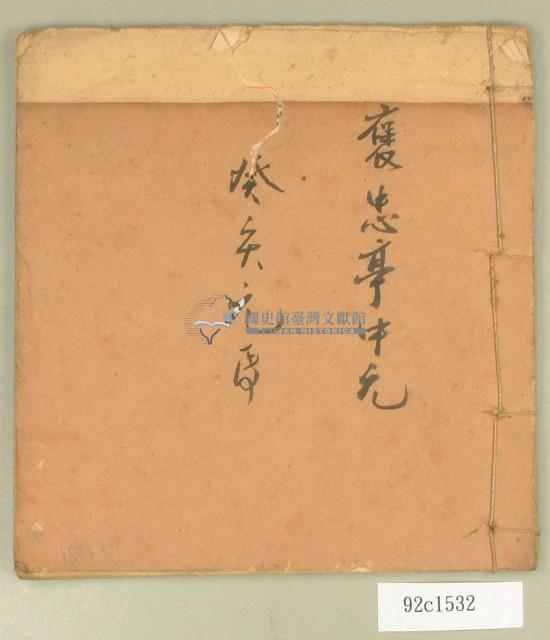 褒忠亭中元
癸亥元月
國史館臺灣文獻館
TAIWAN HISTORICA
92c1532